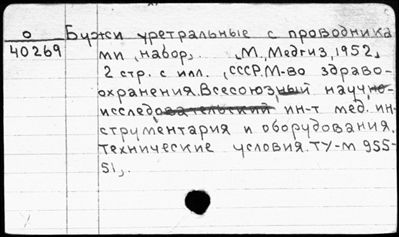 о Бужи уретральные с проводника-
40269 ми, набор. М., Медгиз, 1952,
2 стр. с илл. (СССР. М-во здраво-
охранения. Всесоюзный научно-
исследовательский ин-т мед. ин-
струментария и оборудования.
Технические условия. ТУ-М 955-
51).